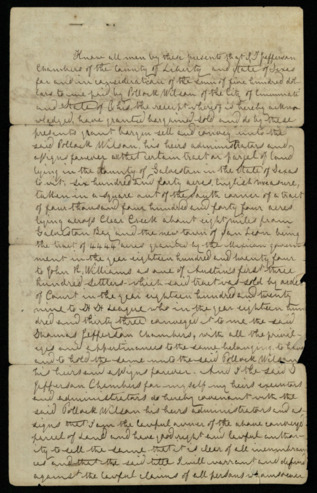 Know all men by these presents that I T. Jefferson
Chambers of the County of Liberty and State of Texas
for and in consideration of the sum of five hundred dol
lars to me paid by Pollock Wilson of the City of Cincinnati
and State of Ohio, the receipt whereof is hereby ackno
wledged, have granted bargained sold and do by these
presents grant bargain sell and convey unto the
said Pollock Wilson his heirs administrators and
assigns forever all that certain tract or parcel of land
lying in the County of Galveston in the State of Texas
to wit: six hundred and forty acres English measure,
taken in a square out of the south corner of a tract
of four thousand four hundred and forty four acres
lying across Clear Creek about eight miles from
Galveston Bay and the new town of San Leon being
the tract of 4444 acres granted by the Mexican govern
ment in the year eighteen hundred and twenty four
to John R. Williams as one of Austins first three
hundred settlers which said tract was sold by order
of Court in the year eighteen hundred and twenty
nine to H. H. League who in the year eighteen hun
dred and thirty three conveyed it to me the said
Thomas Jefferson Chambers, with all the privile
ges and appurtenances to the same belonging to have
and to hold the same unto the said Pollock Wilson
his heirs and assigns forever. And I the said T.
Jefferson Chambers for myself my heirs executors
and administrators do hereby covenant with the
said Pollock Wilson his heirs administrators and as
signs that I am the lawful owner of the above conveyed
parcel of land and have good right and lawful author
ity to sell the same that it is clear of all incumbran
ces and that the said title I will warrant and defend
against the lawful claims of all persons whomsoever